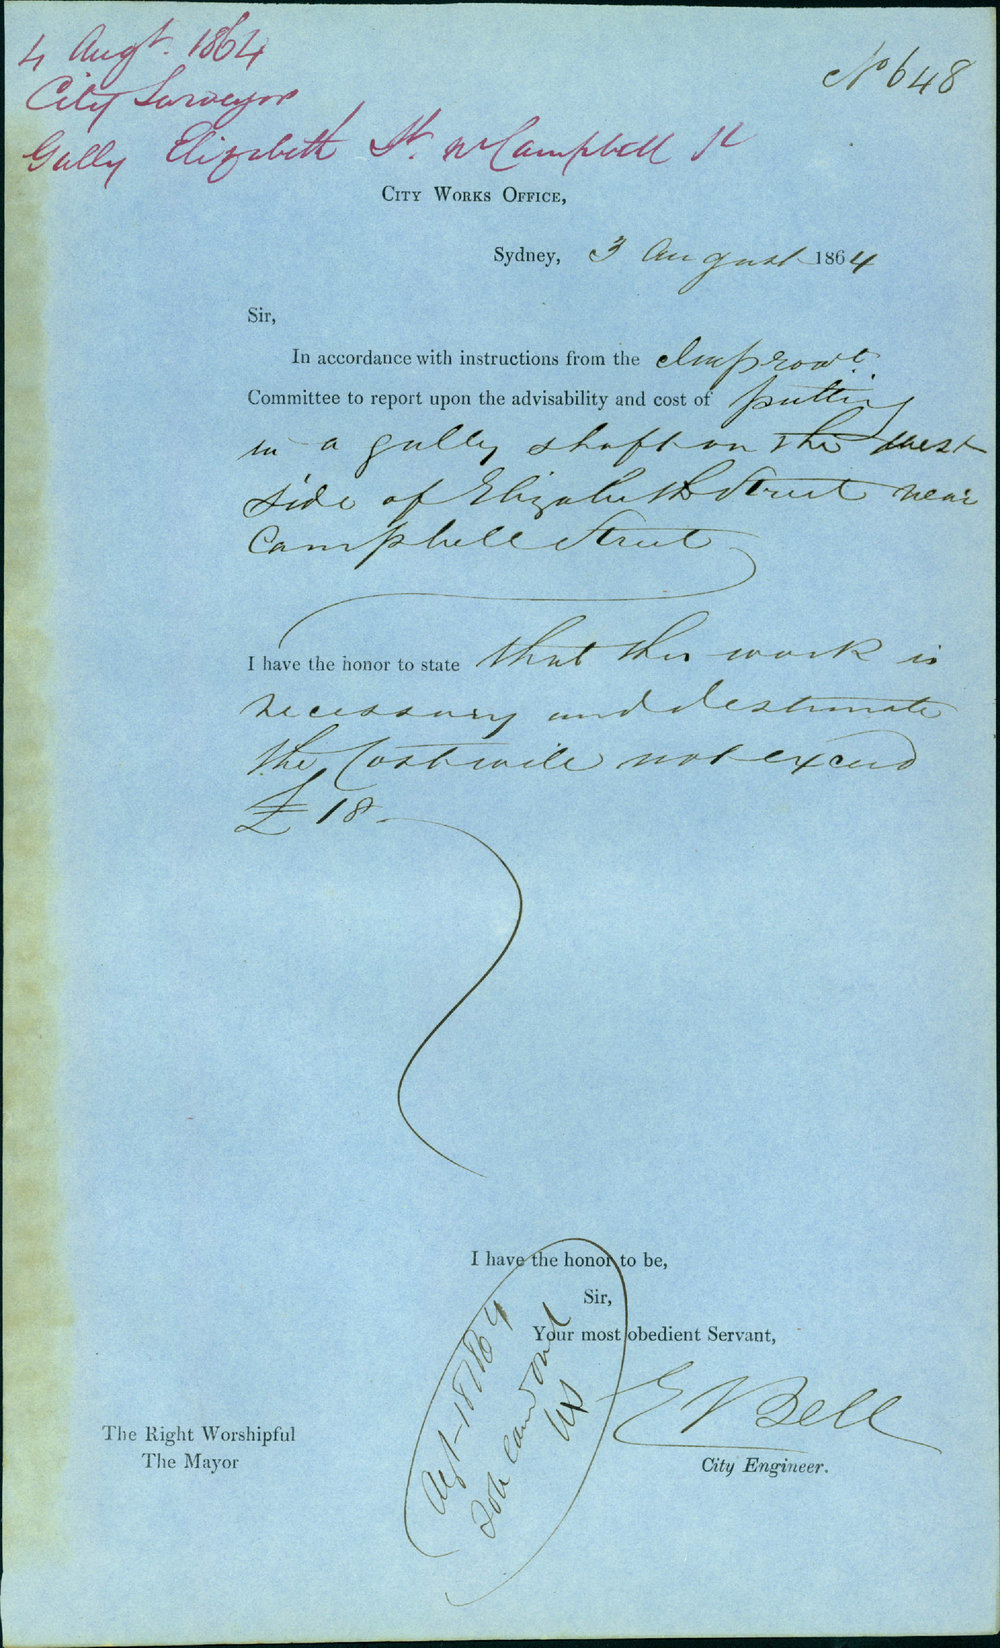 4 Augt. 1864
No 648
City Surveyor
Gully Elizabeth St. nr Campbell St
CITY WORKS OFFICE,
Sydney, 3 August 1864
Sir,
In accordance with instructions from the Improvt.
Committee to report upon the advisability and cost of putting
in a gully shaft on the west
side of Elizabeth Street near
Campbell Street
I have the honor to state that this work is
necessary and I estimate
the Cost will not exceed
£18-
I have the honor to be,
Sir,
Your most obedient Servant,
E Bell
City Engineer.
The Right Worshipful
The Mayor